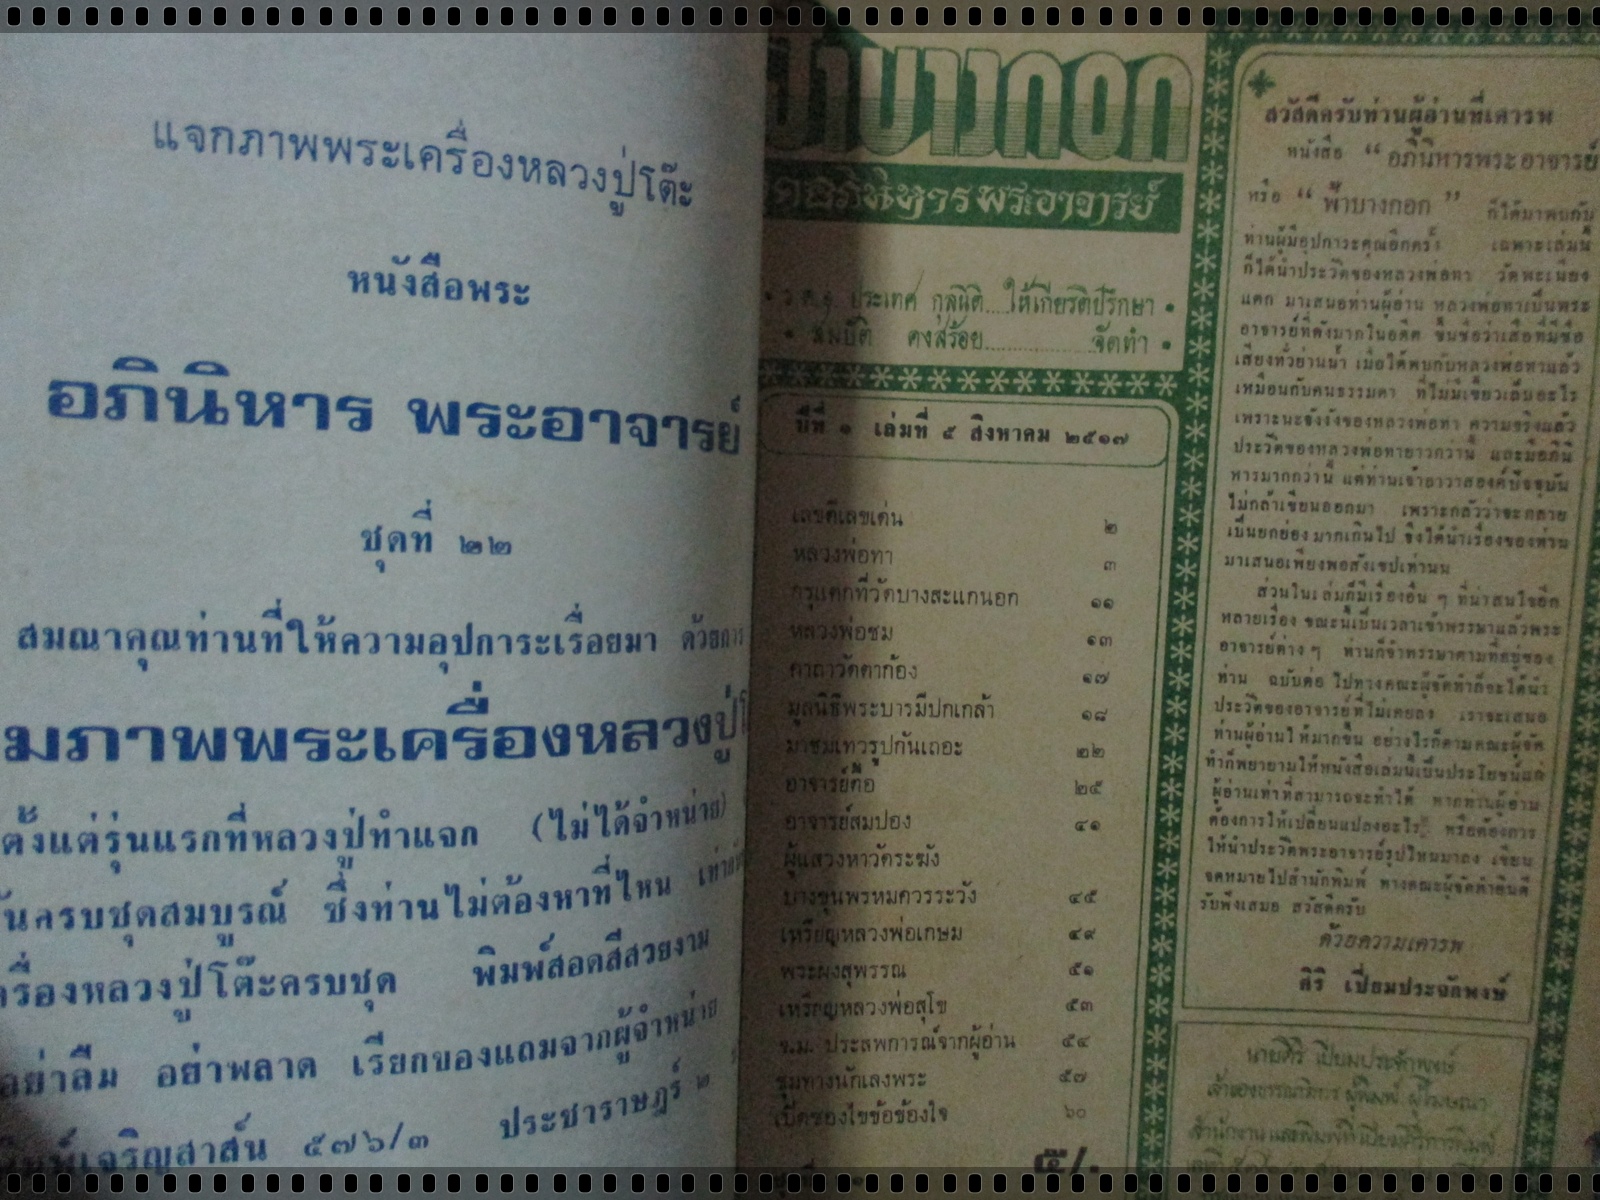 แจกภาพพระเครื่องหลวงปู่โต๊ะ
หนังสือพระ
อภินิหาร พระอาจารย์
ชุดที่ ๒๒
สมณาคุณท่านที่ให้ความอุปการะเรื่อยมา ด้วยการ
มภาพพระเครื่องหลวงปู่
ตั้งแต่รุ่นแรกที่หลวงปู่ทำแจก (ไม่ได้จำหน่าย)
นครบชุดสมบูรณ์ ซึ่งท่านไม่ต้องหาที่ไหน
ครื่องหลวงปู่โต๊ะครบชุด พิมพ์สอดสีสวยงาม
อย่าลืม อย่าพลาด เรียกของแถมจากผู้จำหน่าย
เจริญสาส์น ๕๗๖/๓ ประชาราษฎร์ ๒
ฟ้าบางกอก
อภินิหารพระอาจารย์
• ว.ต.จ. ประเทศ กุลนิติ....ให้เกียรติปรึกษา •
• สมบัติ คงสร้อย...............จัดทำ •
ปีที่ ๑ เล่มที่ ๕ สิงหาคม ๒๕๑๗
เลขดีเลขเด่น ๒
หลวงพ่อทา ๓
กรุแตกที่วัดบางสะแกนอก ๑๑
หลวงพ่อชม ๑๓
คาถาวัดตาก้อง ๑๗
มูลนิธิพระบารมีปกเกล้า ๑๘
มาชมเทวรูปกันเถอะ ๒๒
อาจารย์คือ ๒๕
อาจารย์สมปอง ๔๑
ผู้แสวงหาวัดระฆัง
บางขุนพรหมควรระวัง ๔๕
เหรียญหลวงพ่อเกษม ๔๙
พระผงสุพรรณ ๕๑
เหรียญหลวงพ่อสุโข ๕๓
จ.ม. ประสพการณ์จากผู้อ่าน ๕๔
ชุมทางนักเลงพระ ๕๗
เปิดซองไขข้อข้องใจ ๖๐
๕/-
สวัสดีครับท่านผู้อ่านที่เคารพ
หนังสือ “อภินิหารพระอาจารย์
หรือ “ฟ้าบางกอก” ก็ได้มาพบกับ
ท่านผู้มีอุปการะคุณอีกครั้ง เฉพาะเล่มนี้
ก็ได้นำประวัติของหลวงพ่อทา วัดพะเนียง
แตก มาเสนอท่านผู้อ่าน หลวงพ่อทาเป็นพระ
อาจารย์ที่ดังมากในอดีต ขึ้นชื่อว่าเสือที่มีชื่อ
เสียงทั่วย่านน้ำ เมื่อได้พบกับหลวงพ่อทาแล้ว
เหมือนกับคนธรรมดา ที่ไม่มีเขี้ยวเล็บอะไร
เพราะนะจังงังของหลวงพ่อทา ความจริงแล้ว
ประวัติของหลวงพ่อทายาวกว่านี้ และมีอภินิ
หารมากกว่านี้ แต่ท่านเจ้าอาวาสองค์ปัจจุบัน
ไม่กล้าเขียนออกมา เพราะกลัวว่าจะกลาย
เป็นยกย่องมากเกินไป จึงได้นำเรื่องของท่าน
มาเสนอเพียงพอสังเขปเท่านั้น
ส่วนในเล่มก็มีเรื่องอื่น ๆ ที่น่าสนใจอีก
หลายเรื่อง ขณะนี้เป็นเวลาเข้าพรรษาแล้วพระ
อาจารย์ต่าง ๆ ท่านก็จำพรรษาตามที่อยู่ของ
ท่าน ฉบับต่อไปทางคณะผู้จัดทำก็จะได้นำ
ประวัติของอาจารย์ที่ไม่เคยลง เราจะเสนอ
ท่านผู้อ่านให้มากขึ้น อย่างไรก็ตามคณะผู้จัด
ทำก็พยายามให้หนังสือเล่มนี้เป็นประโยชน์แก่
ผู้อ่านเท่าที่สามารถจะทำได้ หากท่านผู้อ่าน
ต้องการให้เปลี่ยนแปลงอะไร หรือต้องการ
ให้นำประวัติพระอาจารย์รูปไหนมาลง เขียน
จดหมายไปสำนักพิมพ์ ทางคณะผู้จัดทำยินดี
รับฟังเสมอ สวัสดีครับ
ด้วยความเคารพ
ศิริ เปี่ยมประจักพงษ์
นายศิริ เปี่ยมประจักพงษ์
เจ้าของบรรณาธิการ ผู้พิมพ์ ผู้โฆษณา
สำนักงานและพิมพ์ที่